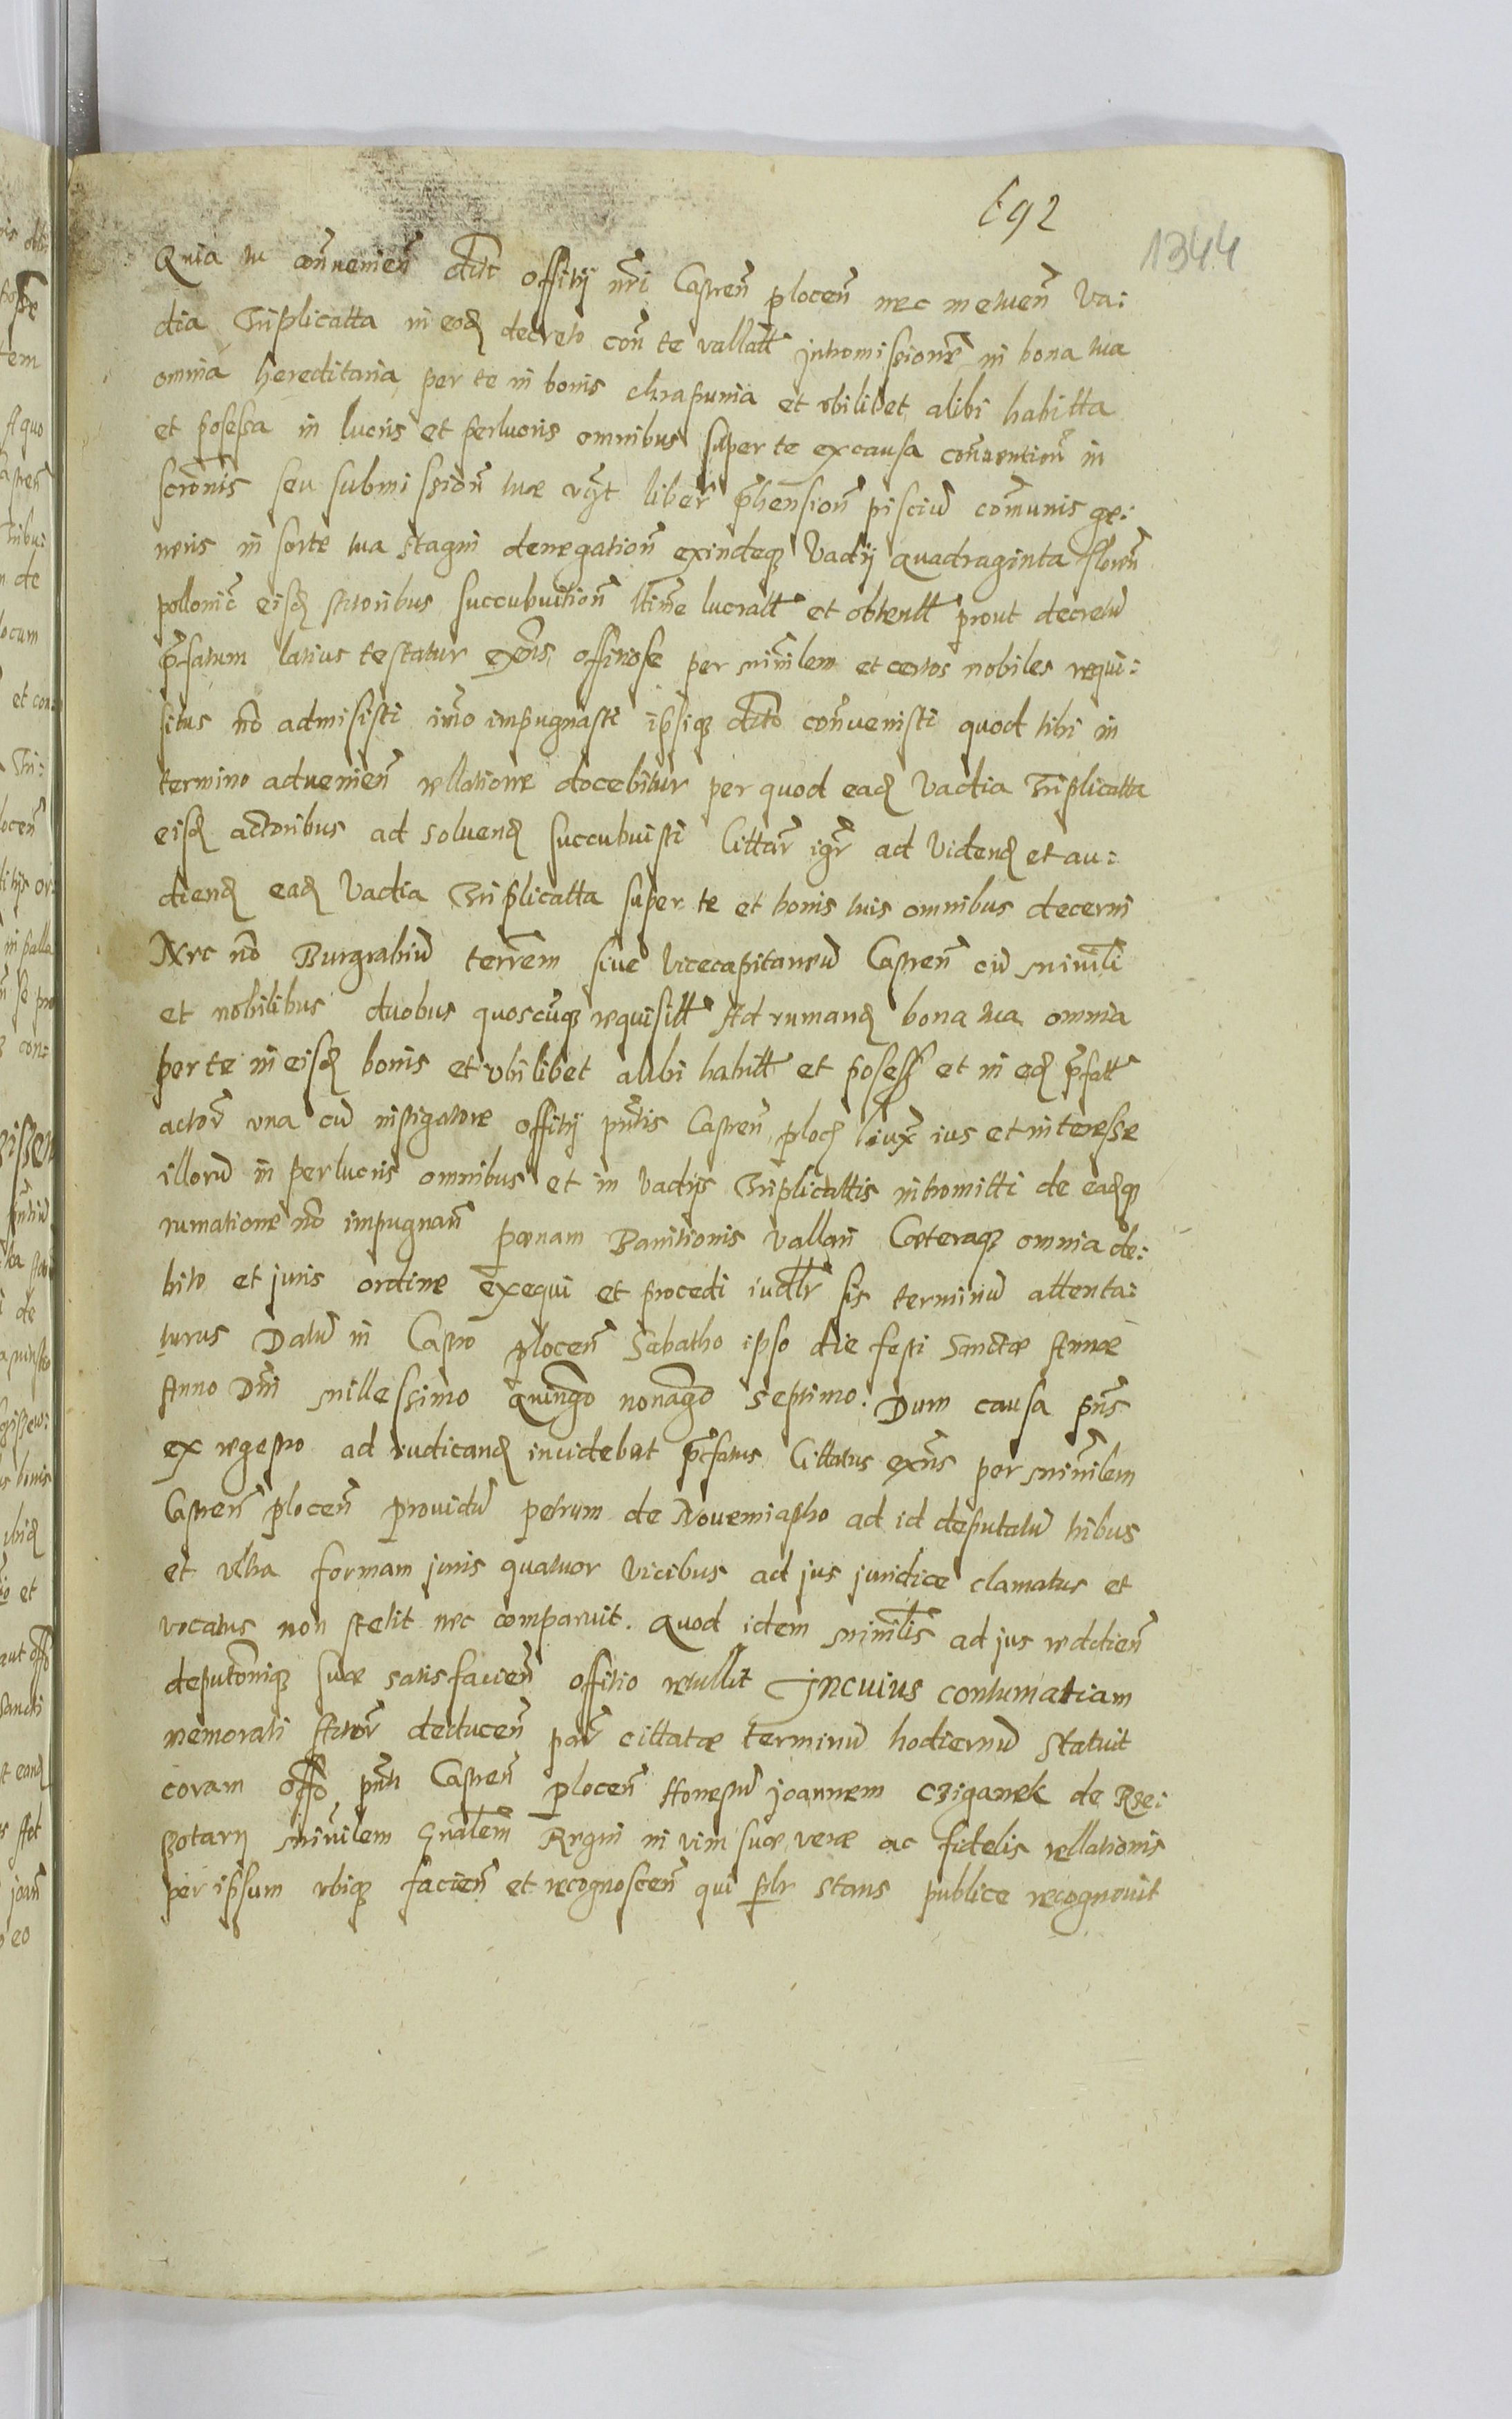 692
1344
Quia tu conṽenien̄ dict̄ offitij nr̄i Castren̄ plocen̄ nec metuen̄ Va:
dia Triplicatta in eod decreto con̄ te vallatt intromissione in bona tua
omnia hereditaria per te in bonis chrapunia et vbilibet alibi habitta
et posessa in lucris et perlucris omnibus super te ex causa conṽention̄ in
scron̄is seu submission̄ tuæ liber p̄hension̄ pisciu com̄unis ge:
neris in sorte tua stagni denegation̄ exindeq Vadij quadraginta floren̄
pollonic̄ eisd Actoribus succubuition̄ ltime lucratt et obtentt prout decretu
p̄fatum latius testatur exn̄s offitiose per min̄ilem et certos nobiles requi:
situs no admisisti imo impugnasti ipsiq dicto conṽenisti quod tibi in
termino aduenien̄ rellatione docebitur per quod ead Vadia Triplicatta
eisd actoribus ad soluend succubuisti Cittar̄ igr̄ ad Vidend et au:
diend ead Vadia Triplicatta super te et bonis tuis omnibus decerni
Nec no Burgrabiu terrem siue Vicecapitaneu Castren̄ cu miniȓli
et nobilibus duobus quoscuq requisitt Ad rumand bona tua omnia
per te in eisd bonis et vbilibet alibi habitt et posess et in ed p̄fatt
actor̄ vna cu instigatore offitij pn̄tis Castren̄ ploc iux̄ ius et interesse
illoru in perlucris omnibus et in Vadijs Triplicattis intromitti de eadq
rumatione no impugnan̄ pænam Banitionis vallari Cæteraq omnia de:
bito et juris ordine exequi et procedi iudr sis terminu attenta:
turus Datu in Castro plocen̄ Sabatho ipso die festi Sanctæ Annæ
Anno Dn̄i millessimo quingo nonago septimo. Dum causa pn̄s
ex regestro ad iudicand incidebat p̄fatus Cittatus exn̄s per min̄ilem
Castren̄ plocen̄ prouidu petrum de Nouemiastho ad id deputatu tribus
et vltra formam juris quatuor vicibus ad jus juridice clamatus et
vocatus non stetit nec comparuit. Quod idem min̄ilis ad jus reddien̄
deputon̄iq suæ satisfacien̄ offitio retullit Jncuius contumatiam
memorati Actor̄ deducen̄ par̄ cittatæ terminu hodiernu statuit
coram offo pn̄ti Castren̄ plocen̄ Honestu joannem cziganek de Rze:
szotary min̄ilem Gnalem Regni in vim suæ veræ ac fidelis rellationis
per ipsum vbiq facien̄ et recognoscen̄ qui plr stans publice recognouit